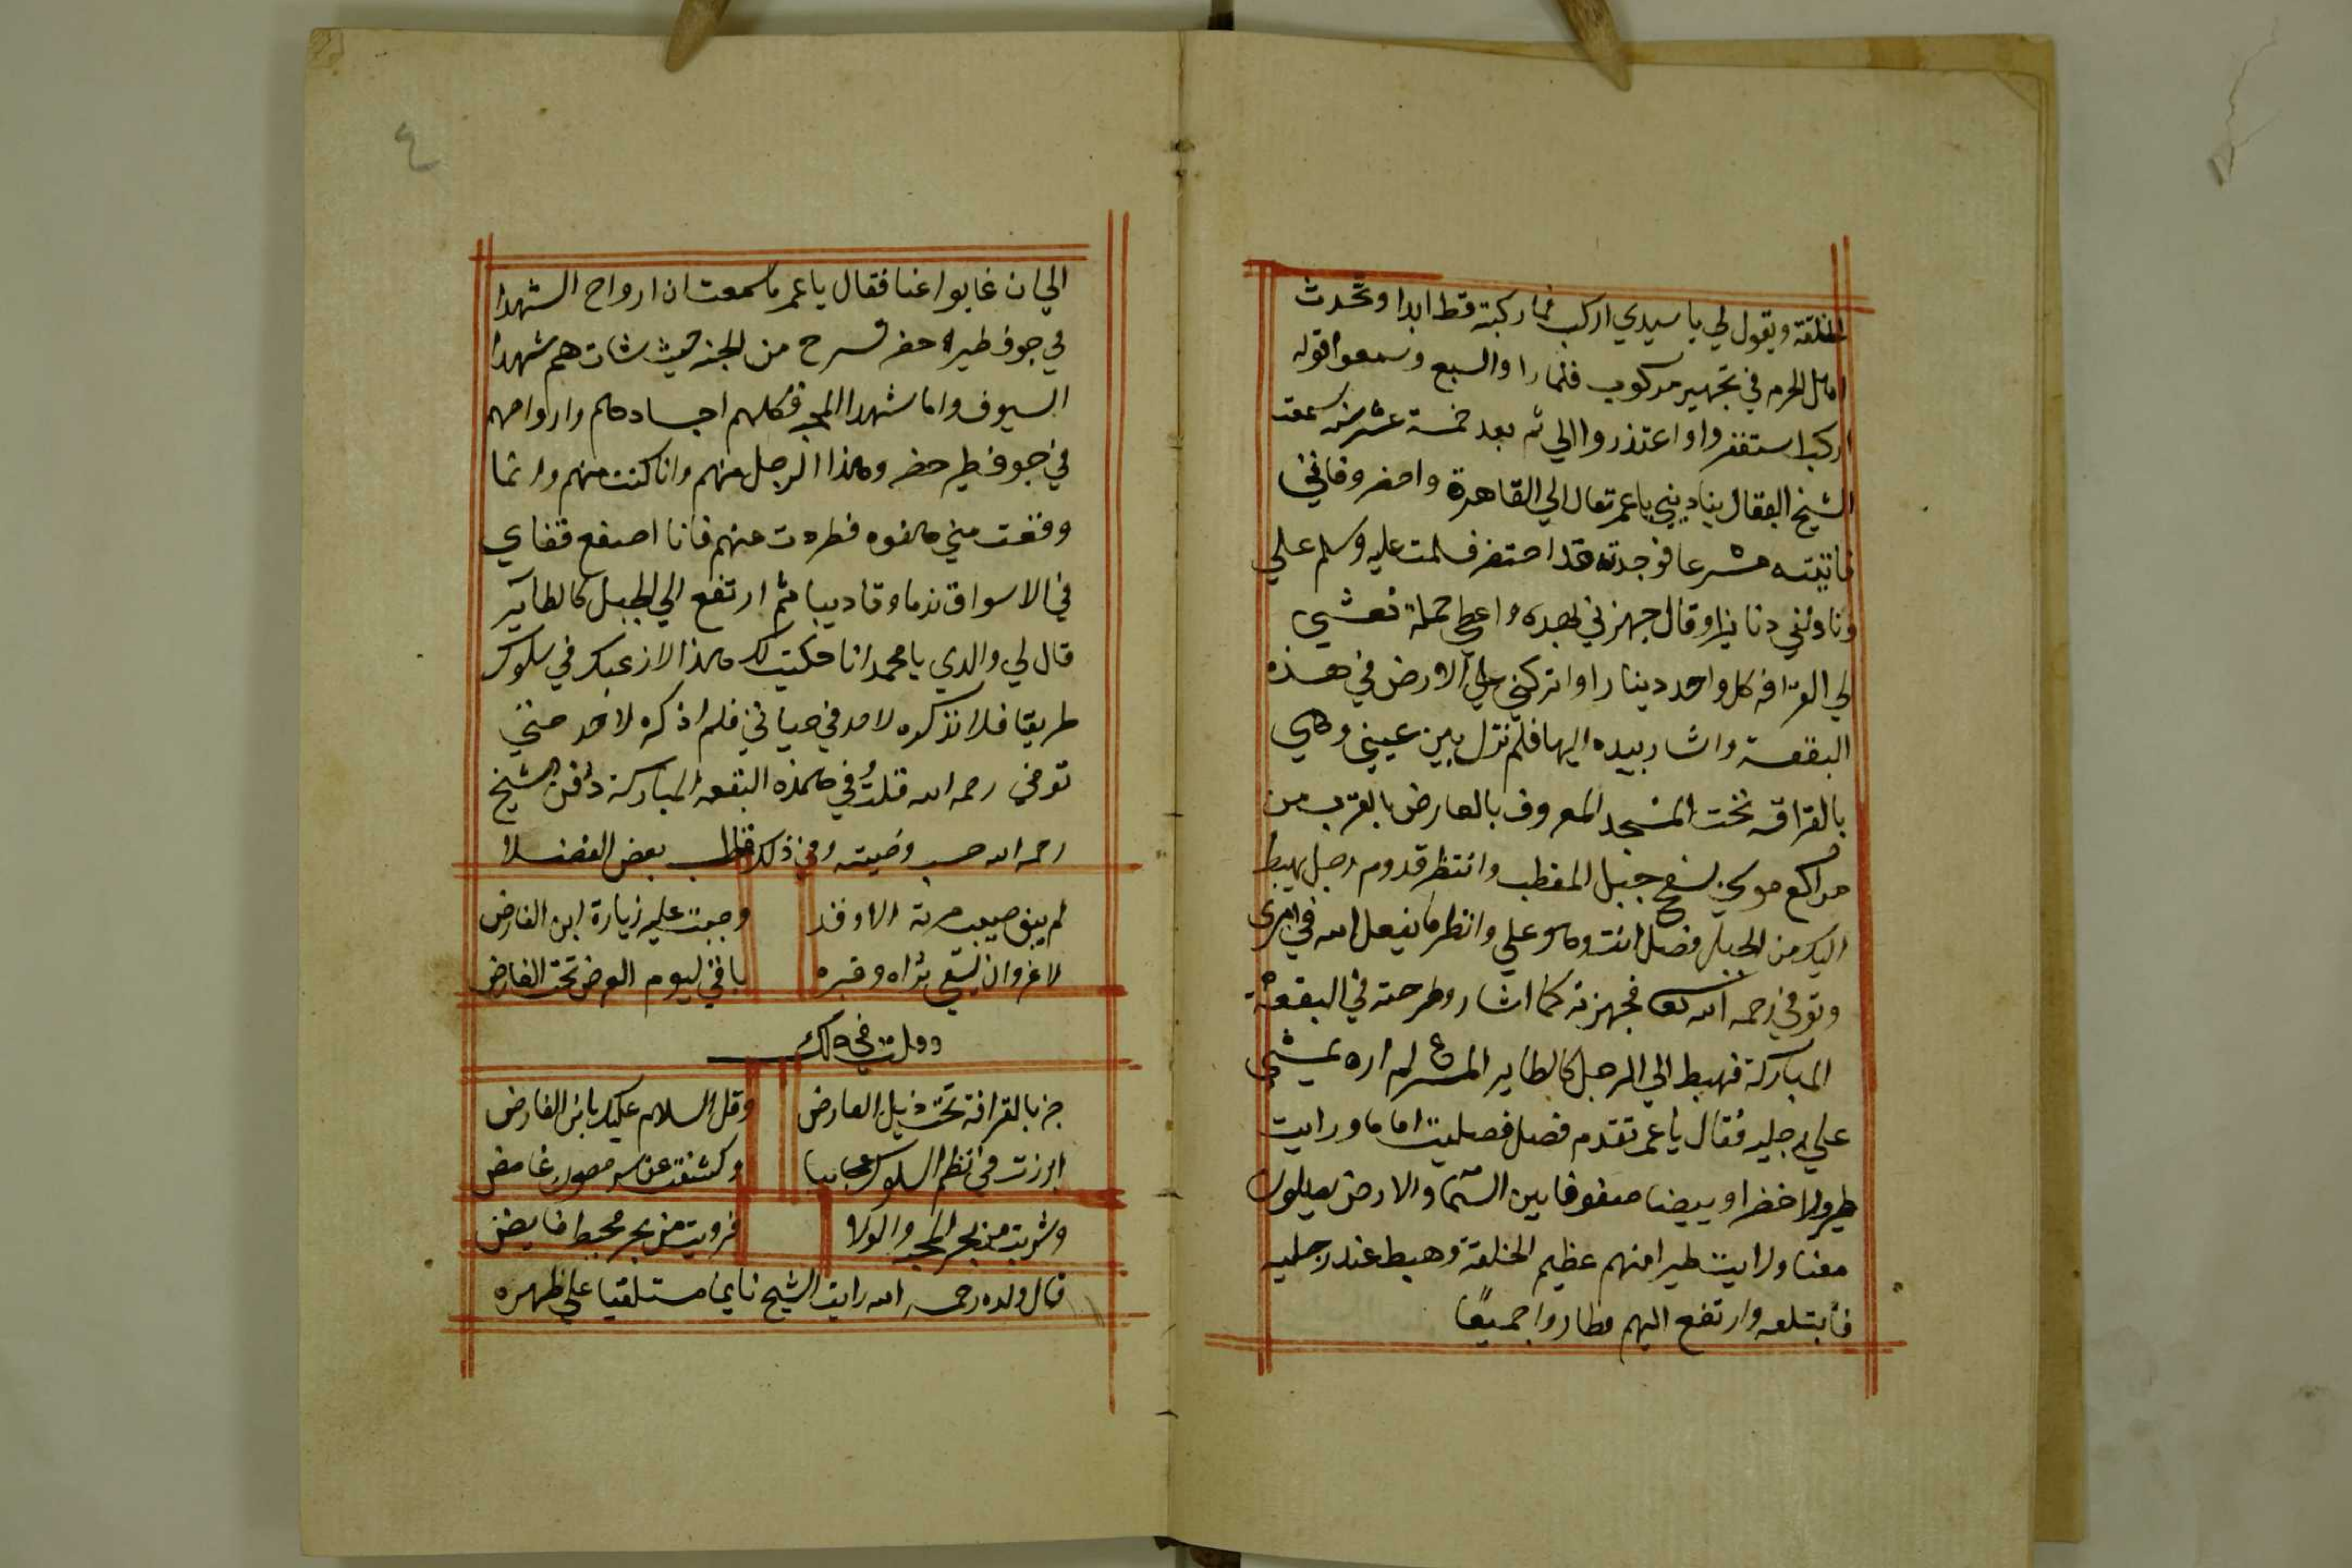 الخلقة ويقول لي يا سيدي اركب فما ركبته قط ابدا وتحدث
اهل الحرم في تجهيز مركوب فلما راوا السبع وسمعوا قوله
اركب استغفروا واعتذروا الي ثم بعد خمسة عشر سنه سمعت
الشيخ البقال يناديني يا عمر تعال الي القاهرة واحضر وفاتي
فاتيته مسرعا فوجدته قد احتضر فسلمت عليه وسلم علي
وناولني دنانيرا وقال جهزني بهذه واعطي حملة نعشي
الي القرافه كل واحد دينارا واتركني علي الارض في هذه
البقعة واشار بيده اليها فلم تزل بين عيني وهي
بالقرافه تحت المسجد المعروف بالعارض بالقرب من
مراكع موسي بسفح جبل المقطب وانتظر قدوم رجل يهبط
اليك من الجبل فصل انت وهو علي وانظر ما يفعل الله في امري
وتوفي رحمه الله تعا فجهزته كما اشار وطرحته في البقعة
المباركة فهبط الي الرجل كالطاير المسرع لم اره يمشي
علي رجليه فقال يا عمر تقدم فصل فصليت اماما ورايت
طيورا خضرا وبيضا صفوفا بين السما والارض يصلون
معنا ورايت طيرا منهم عظيم الخلقة وهبط عند رجليه
فابتلعه وارتفع اليهم وطاروا جميعا
٤
الي ان غابوا عنا فقال يا عمر ما سمعت ان ارواح الشهدا
في جوف طيرا خضر تسرح من الجنه حيث شات هم شهدا
السيوف واما شهدا المحبه فكلهم اجسادهم وارواحهم
في جوف طير خضر وهذا الرجل منهم وانا كنت منهم وانما
وقعت مني هفوه فطردت عنهم فانا اصفع قفاي
في الاسواق ندما وتاديبا ثم ارتفع الي الجبل كالطاير
قال لي والدي يا محمد انا حكيت لك هذا لارغبك في سلوك
طريقا فلا تذكره لاحد في حياتي فلم اذكره لاحد حتي
توفي رحمه الله قلت في هذه البقعه المباركة دفن الشيخ
رحمه الله حسب وصيته وفي ذلك بعض الفضلا
لم يبق صيب مزنة الا وقد وجبت عليه زيارة ابن الفارض
لا غرو ان يسقي ثراه وقبره باقي ليوم العرض تحت العارض
وقلت في ذلك
جز بالقرافة تحت ذيل العارض وقل السلام عليك يا بن الفارض
ابرزت في نظم السلوك عجايبا وكشفت عن سر مصون غامض
وشربت من بحر المحبه والولا فرويت من بحر محيط فايض
قال ولده رحمه الله رايت الشيخ نايما مستلقيا علي ظهره